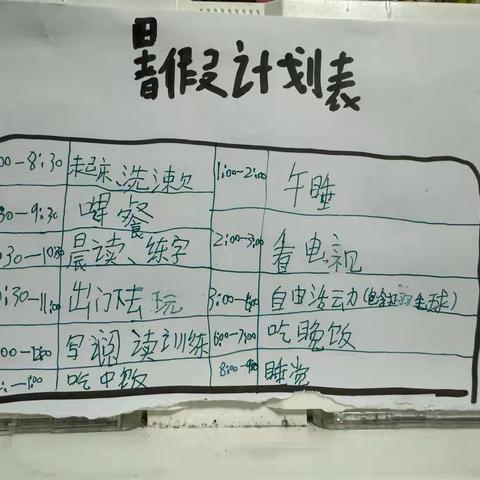 暑假计划表
00-8:30 起床、洗漱 1:00-2:00 午睡
30-9:30 早餐 2:00-3:00 看电视
30-10:30 晨读、练字 3:00- 自由活动(包括羽毛球)
0:30-11:00 出门去玩 6:00-7:00 吃晚饭
00- 写 阅读训练 8:00- 睡觉
-1:00 吃中饭